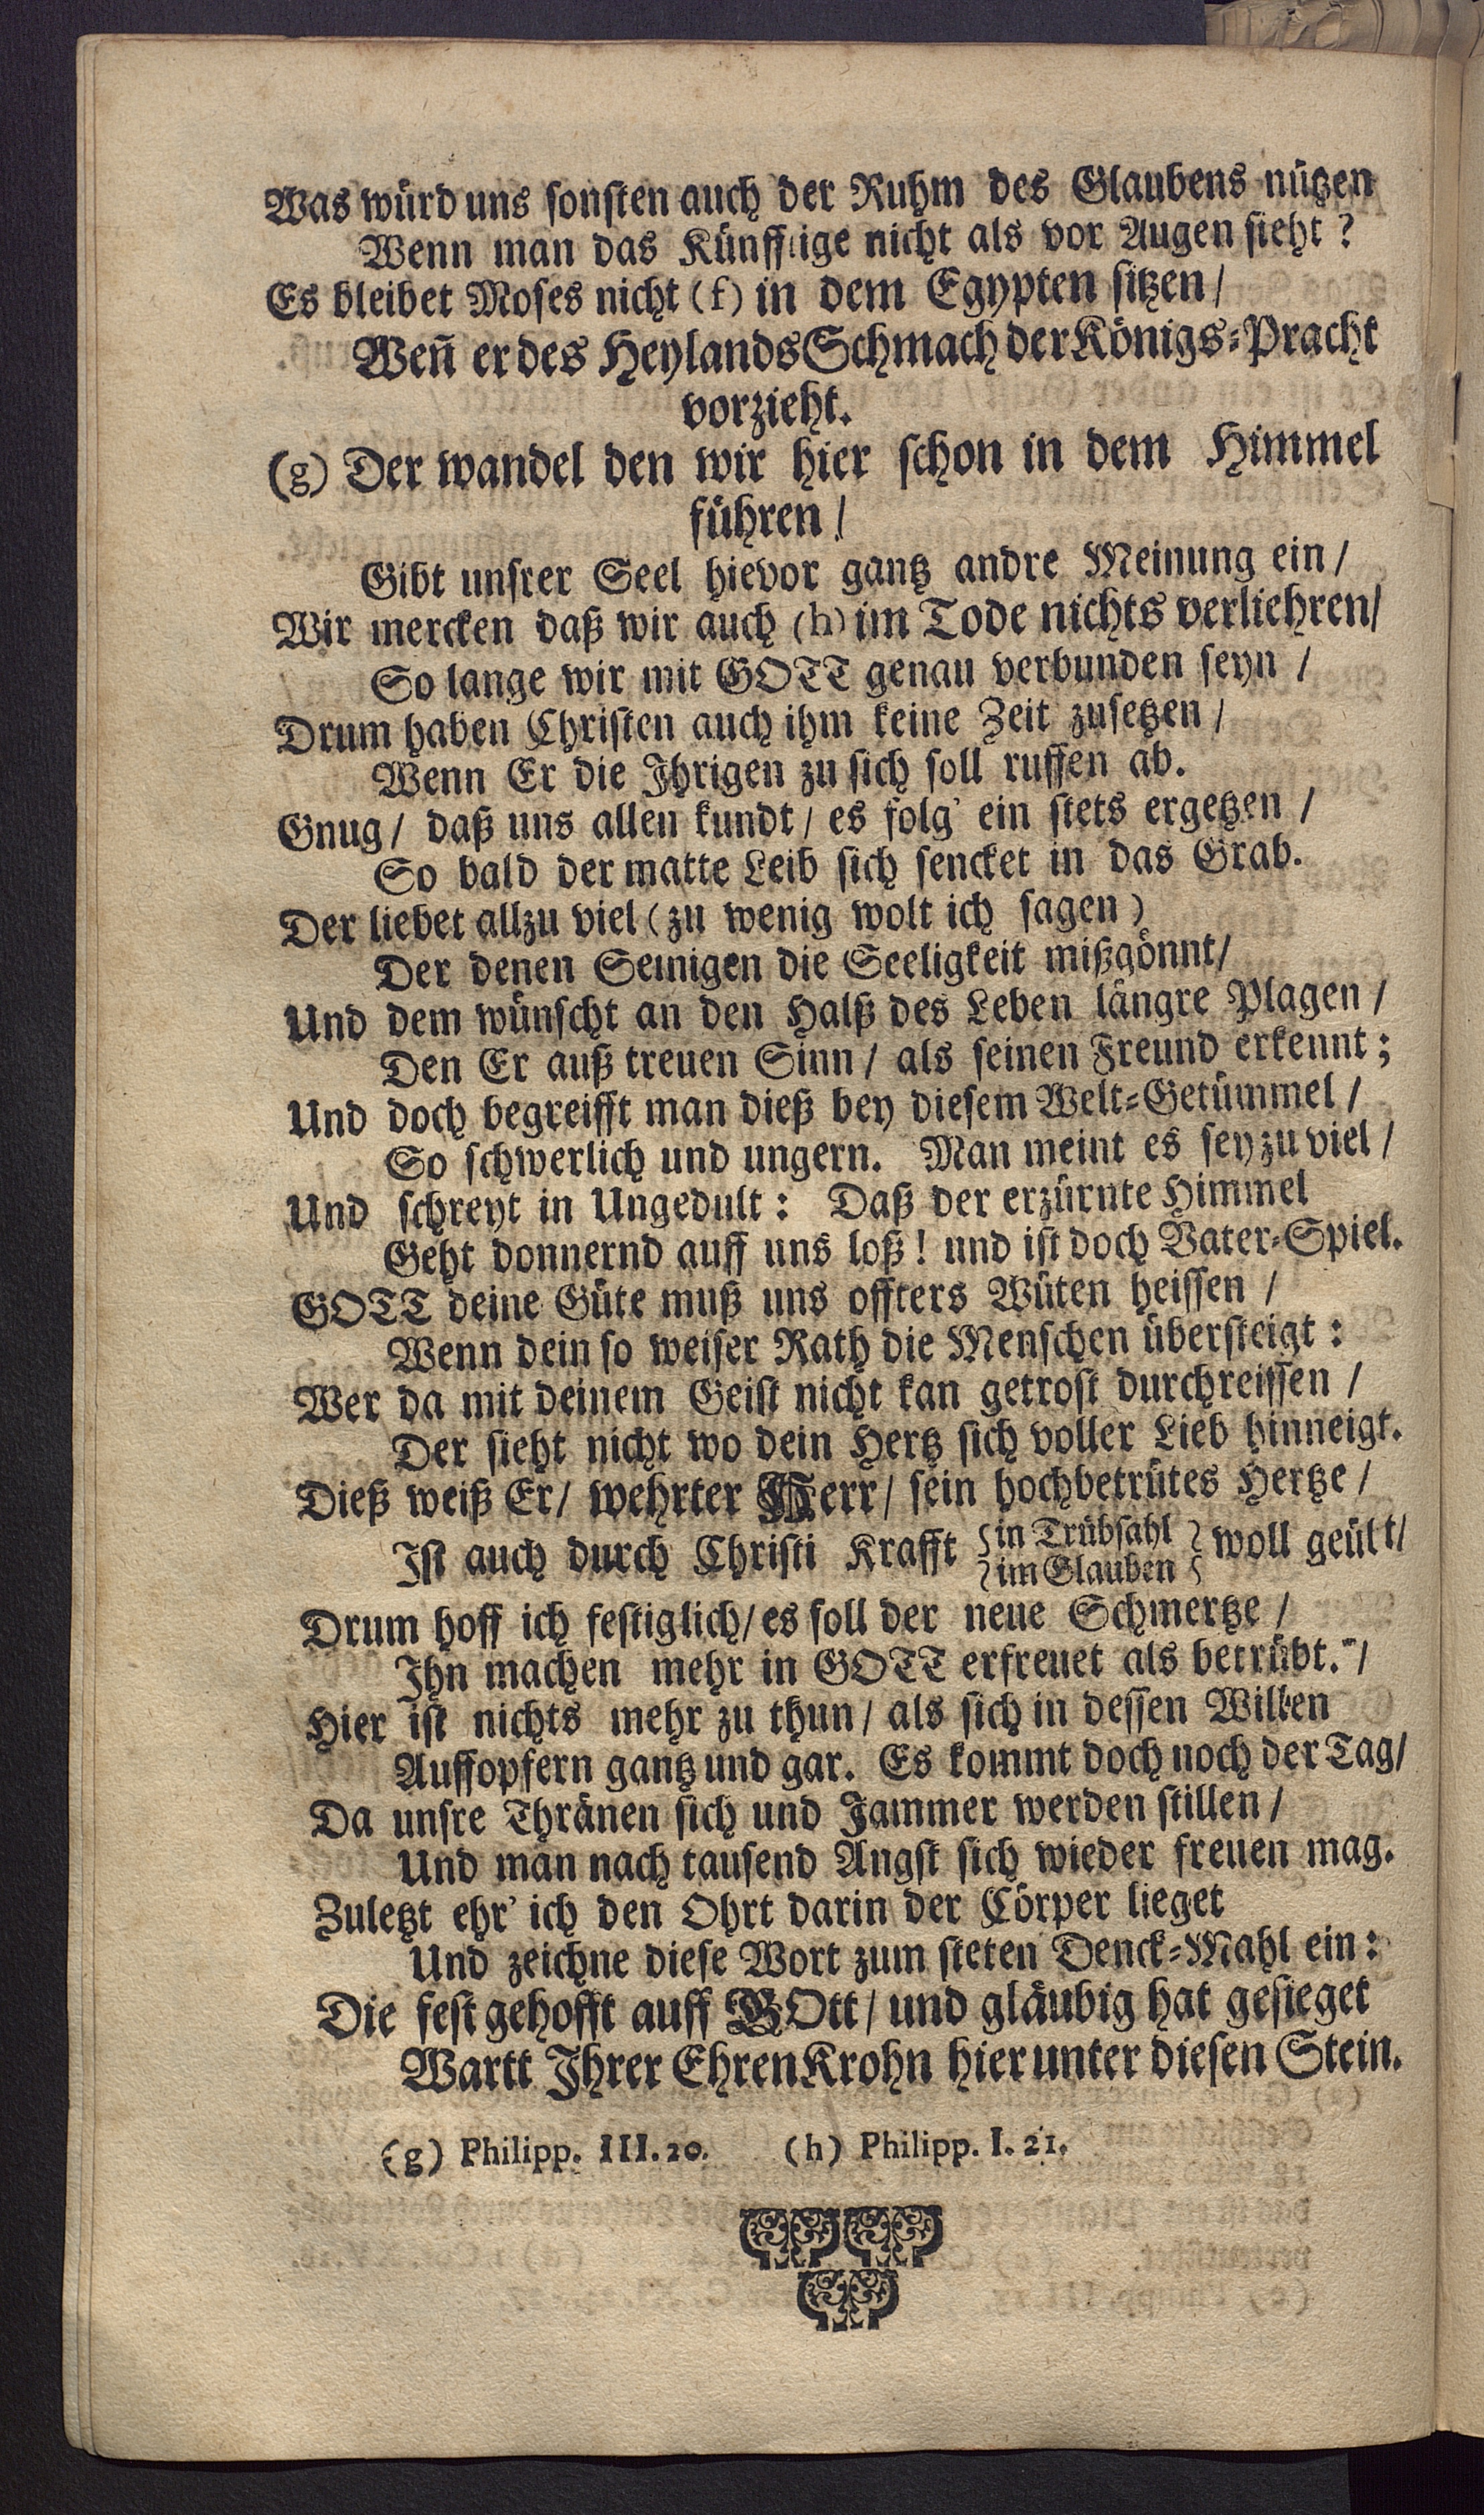 Was würd uns sonsten auch der Ruhm des Glaubens nützen
Wenn man das Künfftige nicht als vor Augen sieht?
Es bleibet Moses nicht (f) in dem Egypten sitzen/
Weñ er des Heylands Schmach der Königs-Pracht
vorzieht.
(g) Der wandel den wir hier schon in dem Himmel
führen/
Gibt unsrer Seel hievor gantz andre Meinung ein/
Wir mercken daß wir auch (h) im Tode nichts verliehren/
So lange wir mit GOTT genau verbunden seyn /
Drum haben Christen auch ihm keine Zeit zusetzen /
Wenn Er die Ihrigen zu sich soll ruffen ab.
Gnug/ daß uns allen kundt/ es folg' ein stets ergetzen /
So bald der matte Leib sich sencket in das Grab.
Der liebet allzu viel (zu wenig wolt ich sagen)
Der denen Seinigen die Seeligkeit mißgönnt/
Und dem wünscht an den Halß des Leben längre Plagen /
Den Er auß treuen Sinn/ als seinen Freund erkennt;
Und doch begreifft man dieß bey diesem Welt-Getümmel /
So schwerlich und ungern. Man meint es sey zu viel /
Und schreyt in Ungedult: Daß der erzürnte Himmel
Geht donnernd auff uns loß! und ist doch Vater-Spiel.
GOTT deine Güte muß uns offters Wüten heissen /
Wenn dein so weiser Rath die Menschen übersteigt:
Wer da mit deinem Geist nicht kan getrost durchreissen /
Der sieht nicht wo dein Hertz sich voller Lieb hinneigt.
Dieß weiß Er/ wehrter Herr/ sein hochbetrütes Hertze /
Ist auch durch Christi Krafft {in Trübsahl} woll geült/
{im Glauben}
Drum hoff ich festiglich/ es soll der neue Schmertze /
Ihn machen mehr in GOTT erfreuet als betrübt. /
Hier ist nichts mehr zu thun/ als sich in dessen Willen
Auffopfern gantz und gar. Es kommt doch noch der Tag/
Da unsre Thränen sich und Jammer werden stillen /
Und man nach tausend Angst sich wieder freuen mag.
Zuletzt ehr' ich den Ohrt darin der Cörper lieget
Und zeichne diese Wort zum steten Denck-Mahl ein:
Die fest gehofft auff GOtt/ und gläubig hat gesieget
Wartt Ihrer Ehren Krohn hier unter diesen Stein.
(g) Philipp. III. 20. (h) Philipp. I. 21.